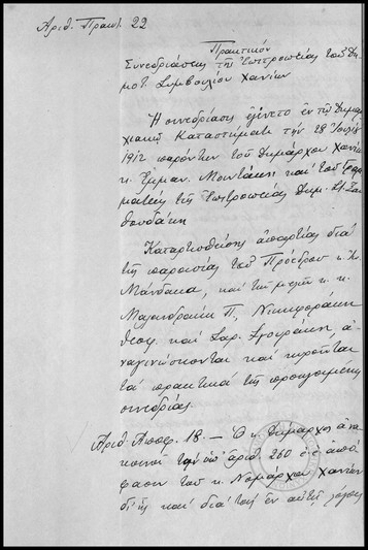 Αριθ. Πρακτ. 22
Πρακτικόν
Συνεδριάσεως της Επιτροπείας του Δη-
μοτ. Συμβουλίου Χανίων
Η συνεδρίασις εγένετο εν τω Δημαρ-
χιακώ Καταστήματι την 28 Ιουλίου
1912 παρόντων του Δημάρχου Χανίων
κ. Εμμαν. Μουντάκη και του Γραμ-
ματέως της Επιτροπείας Δημ.
Καταρτισθείσης απαρτίας δια
της παρουσίας του Προέδρου κ. Κ.
Μάνδακα, και των μελών κ. κ.
Μαλινδράκη Π, Νικηφοράκη
Θεοφ. και Χαρ. Σγουράκη, α-
ναγινώσκονται και κηρούνται
τα πρακτικά της προηγουμένης
συνεδρίας.
Αριθ. Αποφ. 18. — Ο κ. Δήμαρχος ανα-
κοινοί την υπ' αριθ. 260 ε.ε. από-
φασιν του κ. Νομάρχου Χανίων
δι' ης και δια τους εν αυτή λόγους